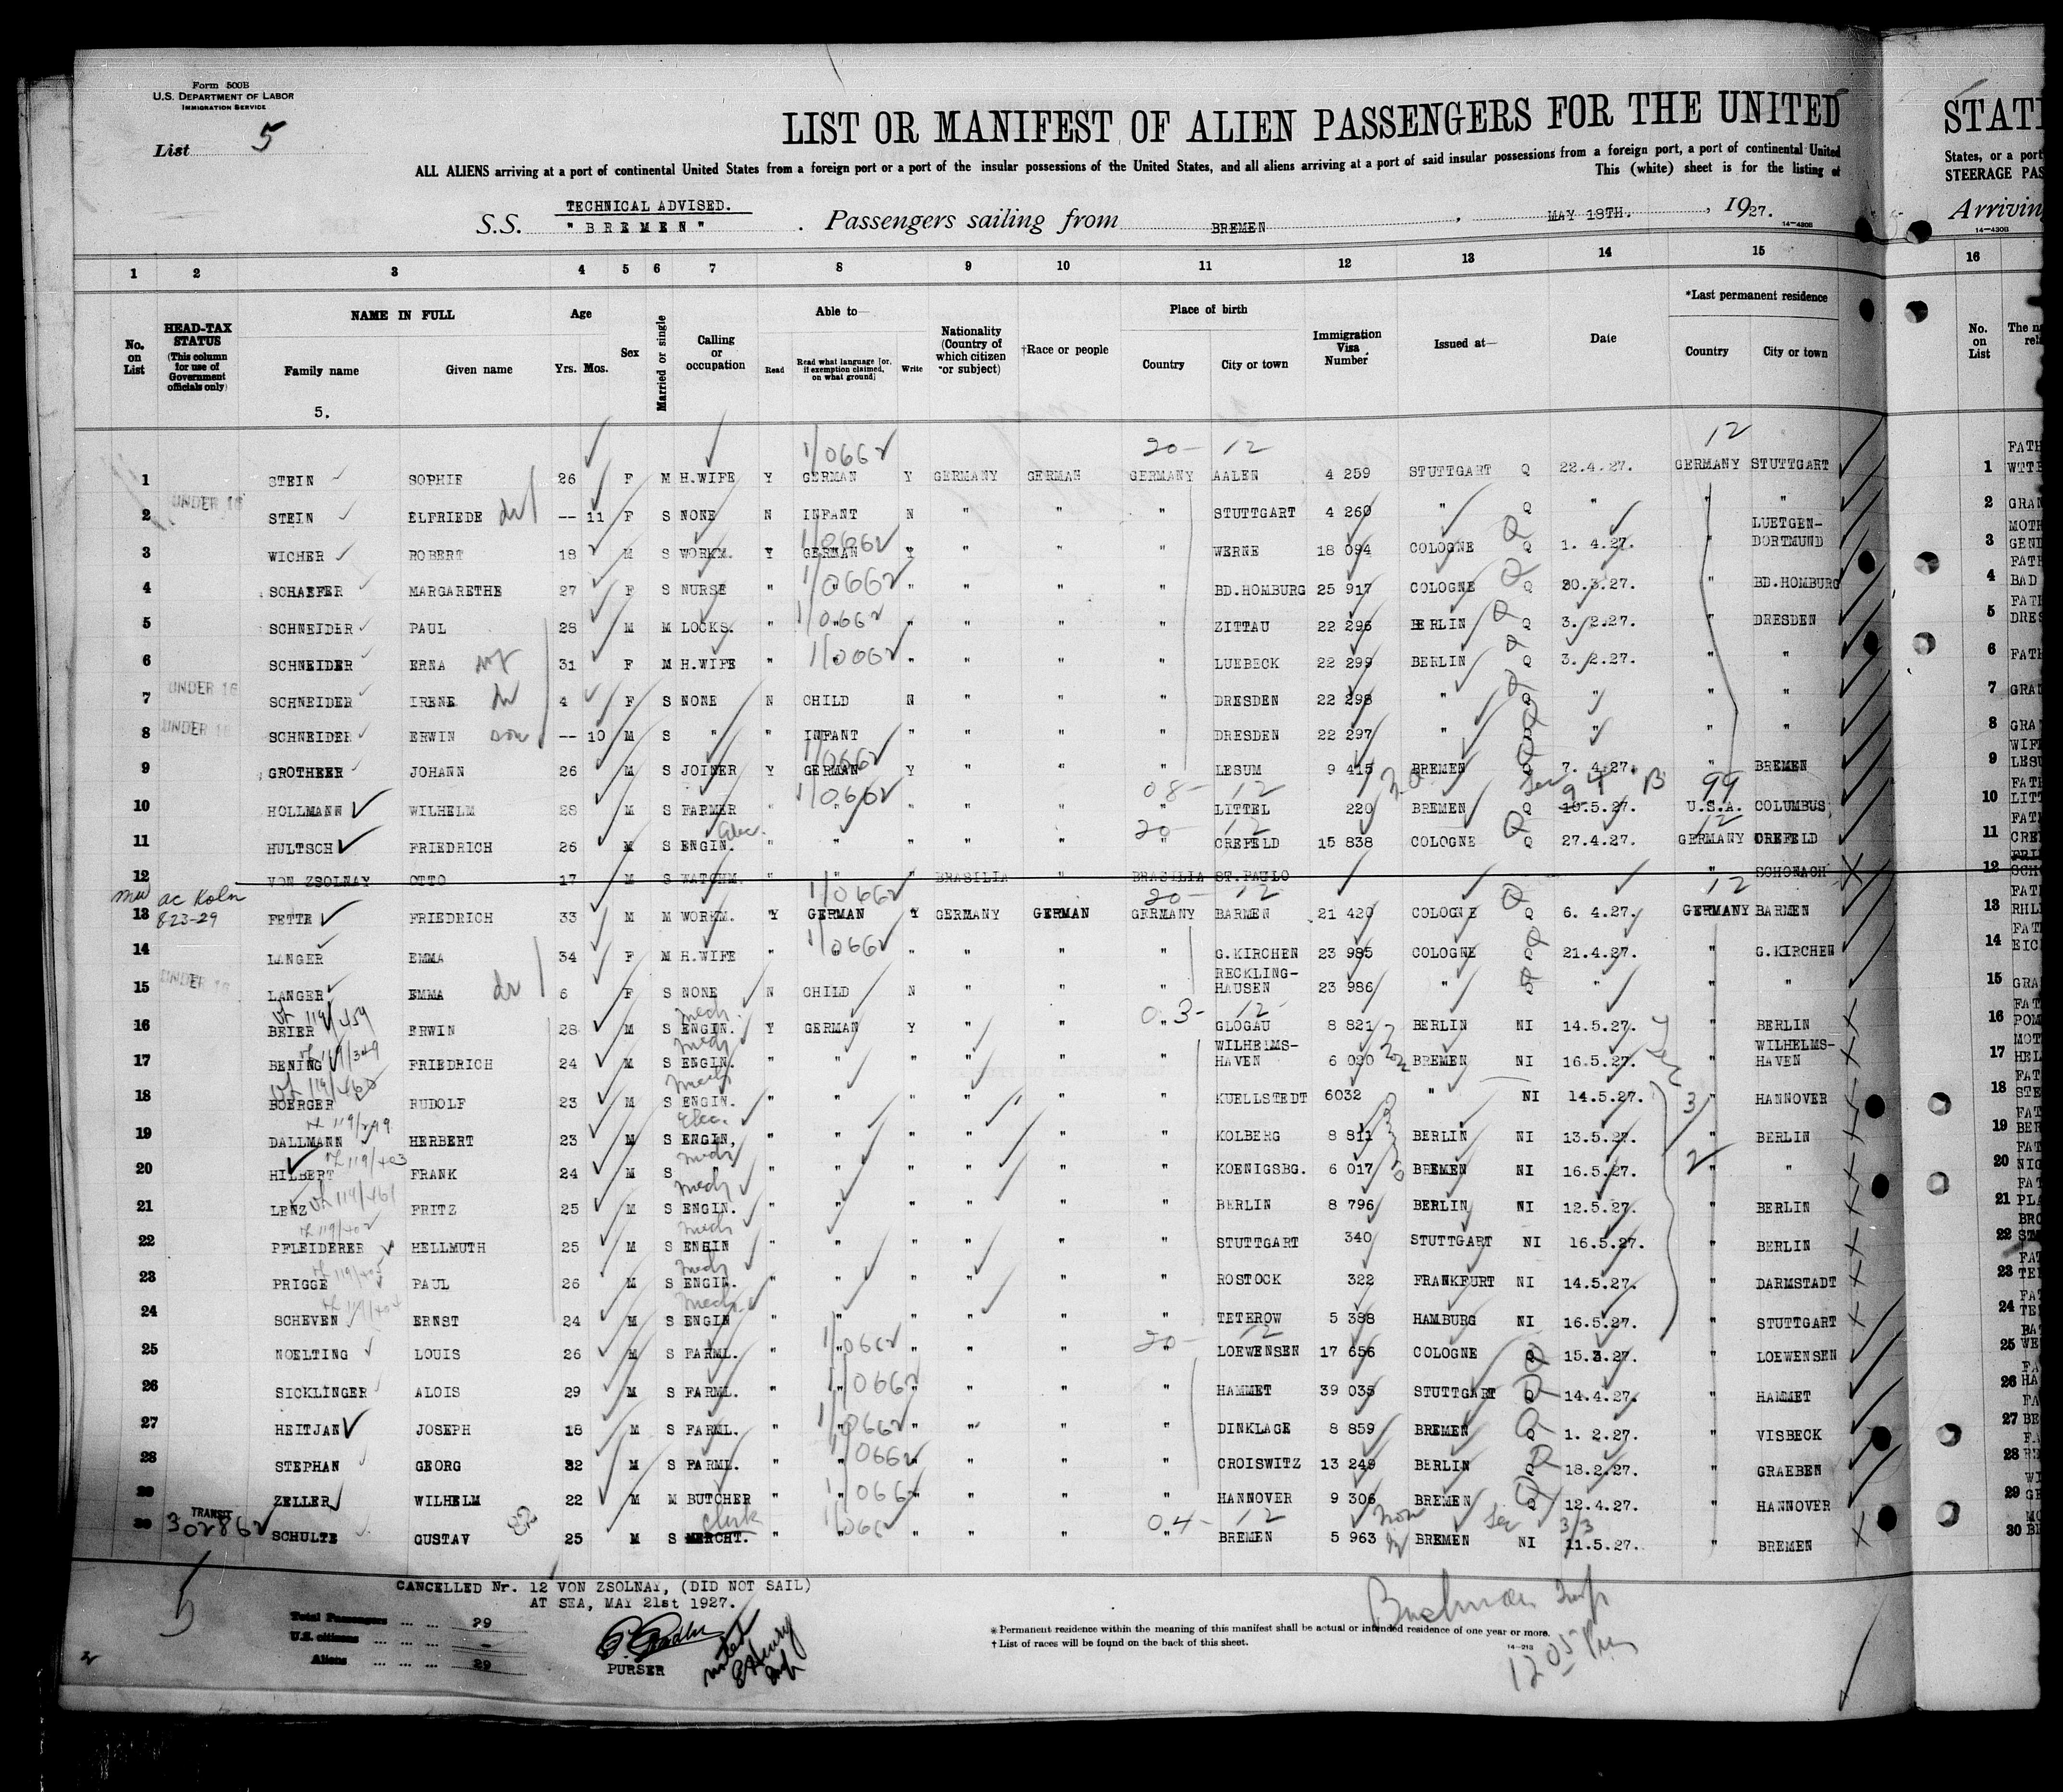 Form 500B
U.S. DEPARTMENT OF LABOR
IMMIGRATION SERVICE
List 5
LIST OR MANIFEST OF ALIEN PASSENGERS FOR THE UNITED
ALL ALIENS arriving at a port of continental United States from a foreign port or a port of the insular possessions of the United States, and all aliens arriving at a port of said insular possessions from a foreign port, a port of continental United
This (white) sheet is for the listing of
TECHNICAL ADVISED.
S.S. "BREMEN" . Passengers sailing from BREMEN , MAY 18TH. , 1927.
14-430B
1 2 3 4 5 6 7 8 9 10 11 12 13 14 15
No. on List
HEAD-TAX STATUS (This column for use of Government officials only)
NAME IN FULL
Family name Given name
5.
Age Yrs. Mos.
Sex
Married or single
Calling or occupation
Able to—
Read
Read what language [or, if exemption claimed, on what ground]
Write
Nationality (Country of which citizen or subject)
†Race or people
Place of birth
Country City or town
Immigration Visa Number
Issued at—
Date
*Last permanent residence
Country City or town
20- 12 12
1 STEIN SOPHIE 26 F M H.WIFE Y GERMAN Y GERMANY GERMAN GERMANY AALEN 4 259 STUTTGART Q 22.4.27. GERMANY STUTTGART
UNDER 16
2 STEIN ELFRIEDE -- 11 F S NONE N INFANT N " " " STUTTGART 4 260 " Q " " "
3 WICHER ROBERT 18 M S WORKM. Y GERMAN Y " " " WERNE 18 094 COLOGNE Q 1. 4.27. LUETGEN-DORTMUND
4 SCHAEFER MARGARETHE 27 F S NURSE " " " " " " BD.HOMBURG 25 917 COLOGNE Q 30.3.27. " BD.HOMBURG
5 SCHNEIDER PAUL 28 M M LOCKS. " " " " " " ZITTAU 22 296 BERLIN Q 3. 2.27. " DRESDEN
6 SCHNEIDER ERNA 31 F M H.WIFE " " " " " " LUEBECK 22 299 BERLIN Q 3. 2.27. " "
UNDER 16
7 SCHNEIDER IRENE 4 F S NONE N CHILD N " " " DRESDEN 22 298 " Q " " "
UNDER 16
8 SCHNEIDER ERWIN son -- 10 M S " " INFANT " " " " DRESDEN 22 297 " " " "
9 GROTHEER JOHANN 26 M S JOINER Y GERMAN Y " " " LESUM 9 415 BREMEN Q 7. 4.27. " BREMEN
08- 12 99
10 HOLLMANN WILHELM 28 M S FARMER " " " " " " LITTEL 220 BREMEN Q 10.5.27. U.S.A. COLUMBUS
Elec. 20- 12 12
11 HULTSCH FRIEDRICH 26 M S ENGIN. " " " " " " CREFELD 15 838 COLOGNE Q 27.4.27. GERMANY CREFELD
12 VON ZSOLNAY OTTO 17 M S WATCHM. " " " BRASILIA " BRASILIA ST.PAULO " SCHONACH
ac Koln 8-23-29 20- 12 12
13 FETTE FRIEDRICH 33 M M WORKM. Y GERMAN Y GERMANY GERMAN GERMANY BARMEN 21 420 COLOGNE Q 6. 4.27. GERMANY BARMEN
14 LANGER EMMA 34 F M H.WIFE " " " " " " G.KIRCHEN 23 985 COLOGNE Q 21.4.27. " G.KIRCHEN
UNDER 16
15 LANGER EMMA 6 F S NONE N CHILD N " " " RECKLING-HAUSEN 23 986 " Q " " "
mech. 03- 12
16 BEIER ERWIN 28 M S ENGIN. Y GERMAN Y " " " GLOGAU 8 821 BERLIN NI 14.5.27. " BERLIN
17 BENING FRIEDRICH 24 M S ENGIN. " " " " " " WILHELMS-HAVEN 6 020 BREMEN NI 16.5.27. " WILHELMS-HAVEN
18 BOERGER RUDOLF 23 M S ENGIN. " " " " " " KUELLSTEDT 6032 " NI 14.5.27. " HANNOVER
Elec.
19 DALLMANN HERBERT 23 M S ENGIN, " " " " " " KOLBERG 8 811 BERLIN NI 13.5.27. " BERLIN
20 HILBERT FRANK 24 M S mech " " " " " " KOENIGSBG. 6 017 BREMEN NI 16.5.27. " "
21 LENZ FRITZ 25 M S ENGIN. " " " " " " BERLIN 8 796 BERLIN NI 12.5.27. " BERLIN
22 PFLEIDERER HELLMUTH 25 M S ENGIN " " " " " " STUTTGART 340 STUTTGART NI 16.5.27. " BERLIN
23 PRIGGE PAUL 26 M S ENGIN. " " " " " " ROSTOCK 322 FRANKFURT NI 14.5.27. " DARMSTADT
24 SCHEVEN ERNST 24 M S ENGIN " " " " " " TETEROW 5 388 HAMBURG NI 16.5.27. " STUTTGART
20- 12
25 NOELTING LOUIS 26 M S FARML. " " " " " " LOEWENSEN 17 656 COLOGNE Q 15.3.27. " LOEWENSEN
26 SICKLINGER ALOIS 29 M S FARML. " " " " " " HAMMET 39 035 STUTTGART Q 14.4.27. " HAMMET
27 HEITJAN JOSEPH 18 M S FARML. " " " " " " DINKLAGE 8 859 BREMEN Q 1. 2.27. " VISBECK
28 STEPHAN GEORG 32 M S FARML. " " " " " " CROISWITZ 13 249 BERLIN Q 18.2.27. " GRAEBEN
29 ZELLER WILHELM 22 M M BUTCHER " " " " " " HANNOVER 9 306 BREMEN Q 12.4.27. " HANNOVER
TRANSIT Clerk 04- 12 3/3
30 302862 SCHULTE GUSTAV 25 M S MERCHT. " " " " " " BREMEN 5 963 BREMEN NI 11.5.27. " BREMEN
CANCELLED Nr. 12 VON ZSOLNAY, (DID NOT SAIL)
AT SEA, MAY 21st 1927.
Total Passengers ... ... 29
U.S. citizens ... ... ... -
Aliens ... ... ... ... 29
PURSER
* Permanent residence within the meaning of this manifest shall be actual or intended residence of one year or more.
† List of races will be found on the back of this sheet.
14-213
1205 Pm
STAT
States, or a port
STEERAGE PAS
Arriving
14-430B
16
No. on List